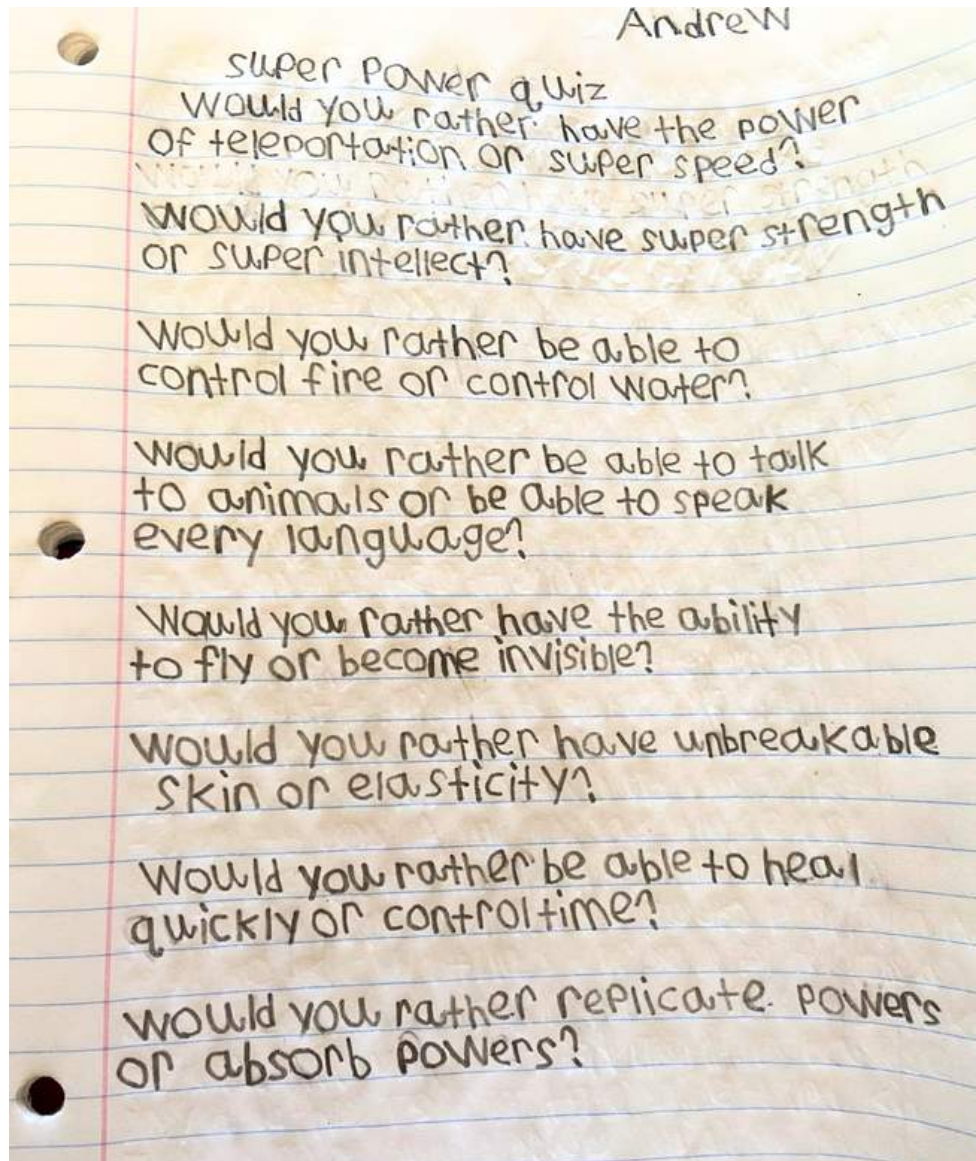 Andrew
super power quiz
Would you rather have the power
of teleportation or super speed?
Would you rather have super strength
Would you rather have super strength
or super intellect?
Would you rather be able to
control fire or control water?
Would you rather be able to talk
to animals or be able to speak
every language?
Would you rather have the ability
to fly or become invisible?
Would you rather have unbreakable
skin or elasticity?
Would you rather be able to heal
quickly or control time?
would you rather replicate powers
or absorb powers?